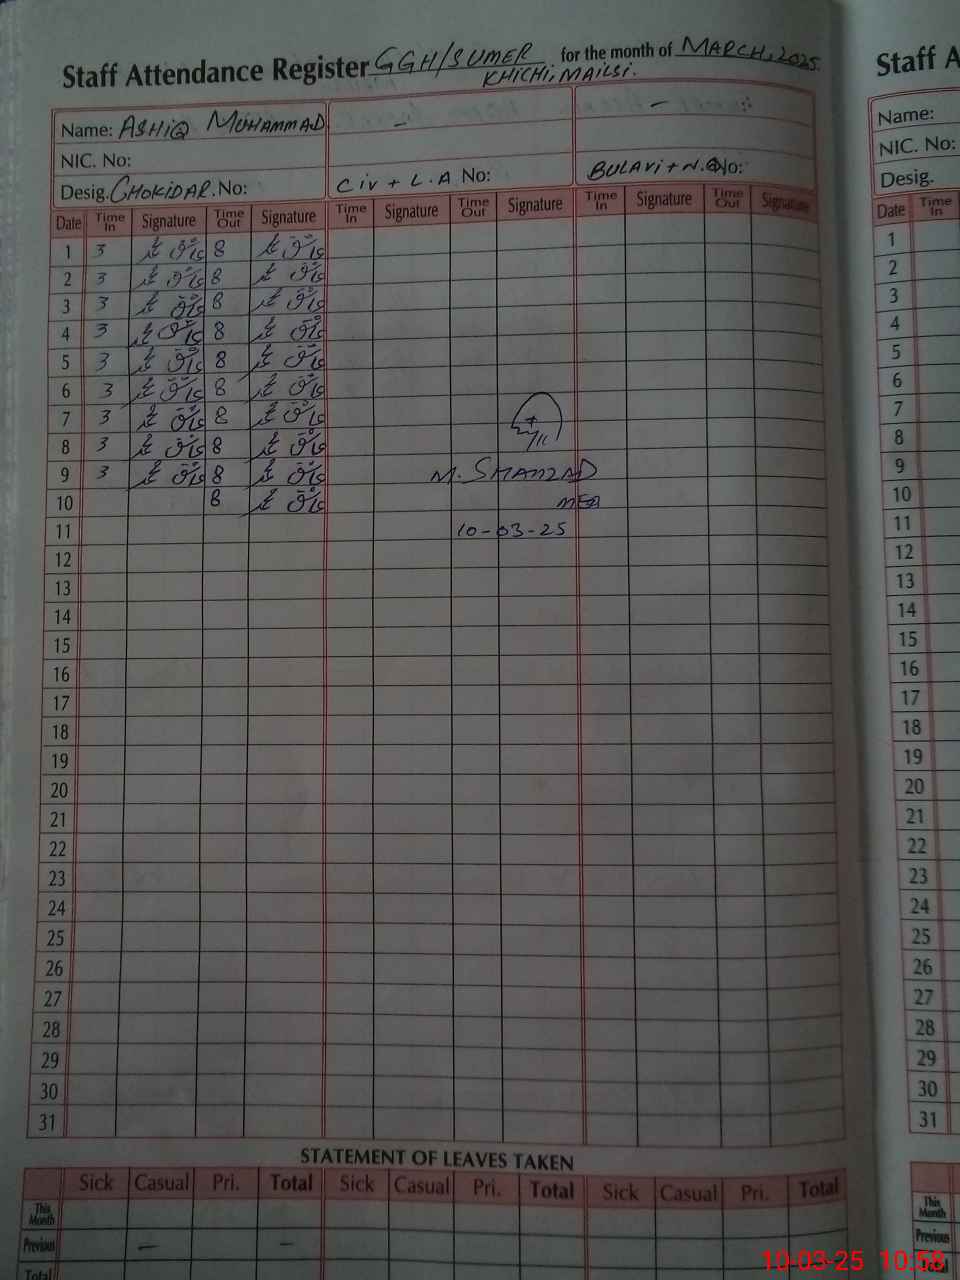 Staff Attendance Register GGH/SUMER for the month of MARCH, 2025.
KHICHI, MAILSI.
Name: ASHIQ MUHAMMAD - -
NIC. No:
Desig. CHOKIDAR. No: Civ + L.A No: BULAVI + N.Q No:
Date Time In Signature Time Out Signature Time In Signature Time Out Signature Time In Signature Time Out Signature
1 3 8
2 3 8
3 3 8
4 3 8
5 3 8
6 3 8
7 3 8
8 3 8
9 3 8 M. SHAHZAD
10 8 MEA
11 10-03-25
12
13
14
15
16
17
18
19
20
21
22
23
24
25
26
27
28
29
30
31
STATEMENT OF LEAVES TAKEN
Sick Casual Pri. Total Sick Casual Pri. Total Sick Casual Pri. Total
This Month
Previous - -
Total
Staff A
Name:
NIC. No:
Desig.
Date Time In
1
2
3
4
5
6
7
8
9
10
11
12
13
14
15
16
17
18
19
20
21
22
23
24
25
26
27
28
29
30
31
This Month
Previous
Total
10-03-25 10:58